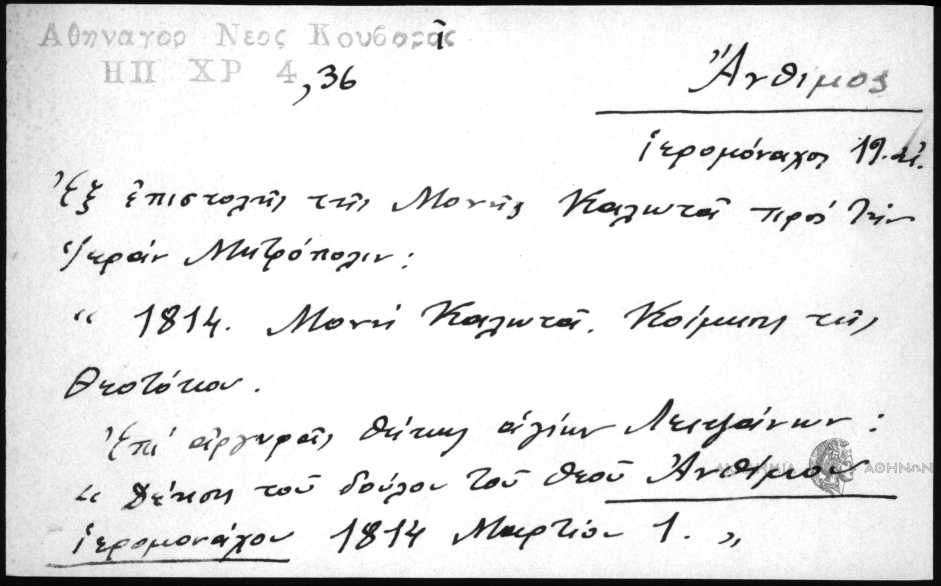 Αθηναγορ Νεος Κουβαρᾶς
ΗΠ ΧΡ 4, 36
Ἄνθιμος
ἱερομόναχος 19. αἰ.
Ἐξ ἐπιστολῆς τῆς Μονῆς Καλωτᾶ πρὸς τὴν
Ἱερὰν Μητρόπολιν:
“ 1814. Μονὴ Καλωτᾶ. Κοίμησις τῆς
Θεοτόκου.
Ἐπὶ ἀργυρᾶς θήκης ἁγίων Λειψάνων:
ΑΚΑΔΗΜΙΑ ΑΘΗΝΩΝ
“ Δέησις τοῦ δούλου τοῦ Θεοῦ Ἀνθίμου
ἱερομονάχου 1814 Μαρτίου 1. „